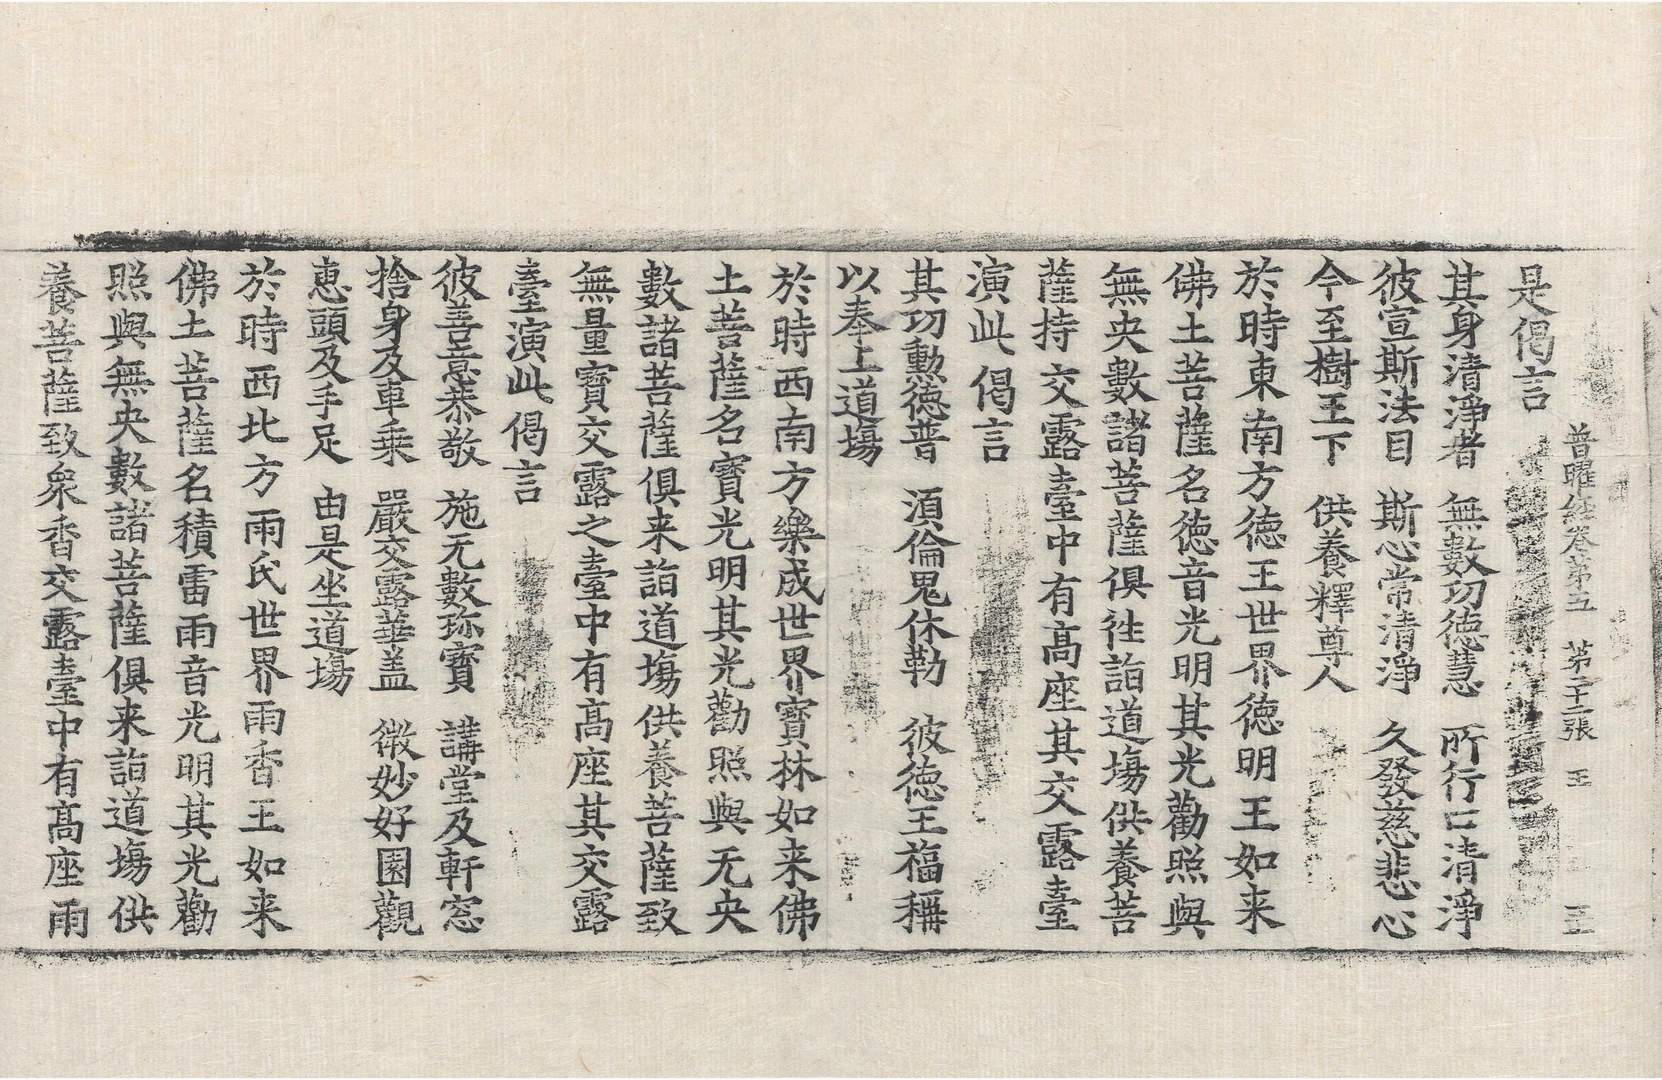 普曜経卷第五　第二十二張　王
是偈言
其身清淨者　無數功德慧　所行口清淨
彼宣斯法目　斯心常清淨　久發慈悲心
今至樹王下　供養釋尊人
於時東南方德王世界德明王如来
佛土菩薩名德音光明其光勸照與
無央數諸菩薩俱往詣道場供養菩
薩持交露臺中有高座其交露臺
演此偈言
其功勳德普　須倫鬼休勒　彼德王福稱
以奉上道場
於時西南方樂成世界寶林如来佛
土菩薩名寶光明其光勸照與无央
數諸菩薩俱来詣道場供養菩薩致
無量寶交露之臺中有高座其交露
臺演此偈言
彼善意恭敬　施无數珎寶　講堂及軒窓
捨身及車乘　嚴交露華盖　微妙好園觀
惠頭及手足　由是坐道場
於時西北方雨氏世界雨香王如来
佛土菩薩名積雷雨音光明其光勸
照與無央數諸菩薩俱来詣道場供
養菩薩致衆香交露臺中有高座雨